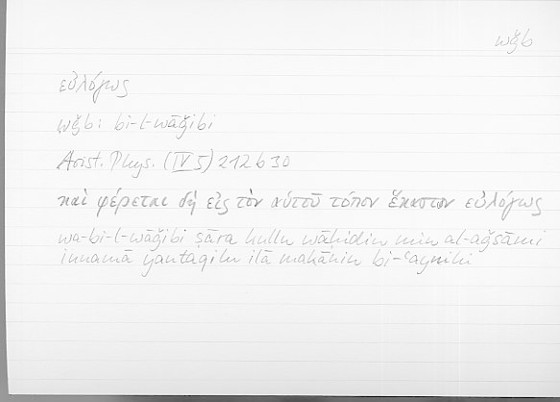 wǧb
εὐλόγως
wǧb: bi-l-wāǧibi
Arist. Phys. (IV 5) 212b30
καὶ φέρεται δὴ εἰς τὸν αὑτοῦ τόπον ἕκαστον εὐλόγως
wa-bi-l-wāǧibi ṣāra kullu wāḥidin min al-aǧsāmi
innamā yantaqilu ilā makānin bi-ʿaynihi